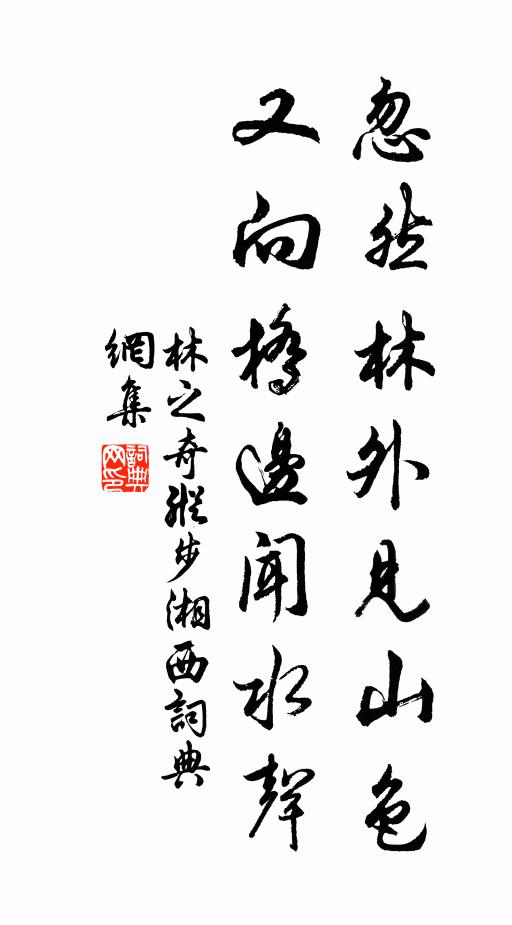 忽然林外見山色
又向橋邊聞水聲
林之奇縱步湘西詞典
網集
詞典
网印